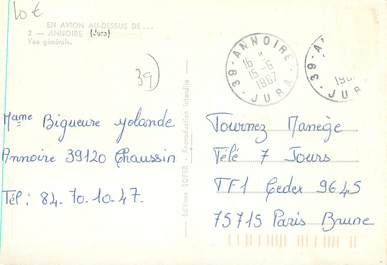 10€
EN AVION AU-DESSUS DE...
2 - ANNOIRE (Jura)
Vue générale.
39
ANNOIRE
16 H
15-6
1987
39 - JURA
39 - A
198
JURA
Mme Bigueure Yolande
Annoire 39120 Chaussin
Tél: 84.70.10.47.
Reproduction interdite
Tournez Manège
Télé 7 Jours
TF1 Cedex 9645
75715 Paris Brune